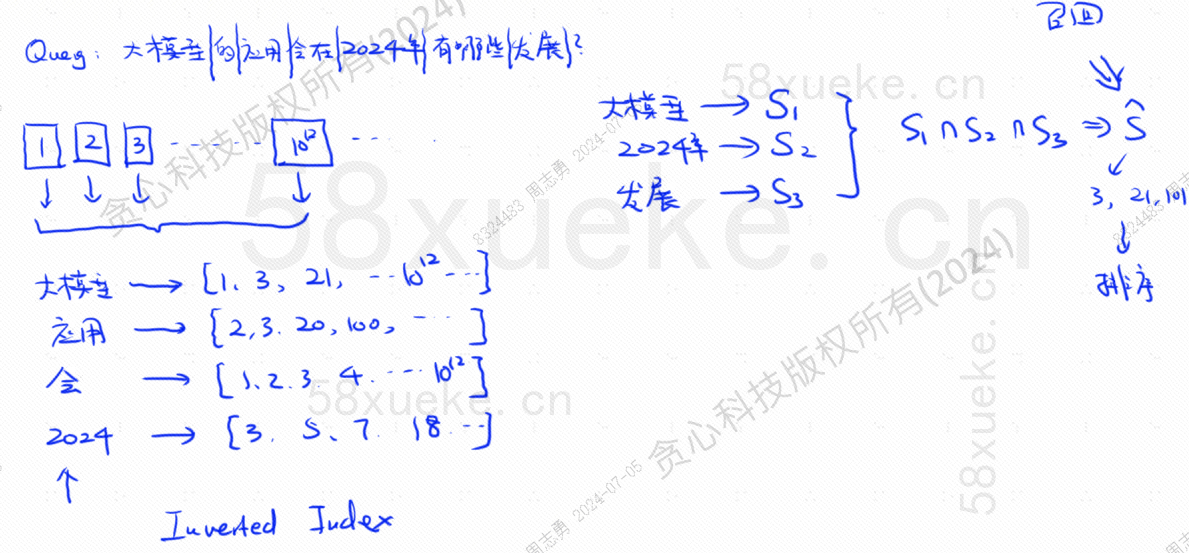 Query: 大模型|的|应用|会在|2024年|有哪些|发展|?
1 2 3 ------ 10^12 ---
大模型 → [1、3, 21, --- 10^12 ---]
应用 → [2,3. 20, 100, ---]
会 → [1、2、3. 4. --- 10^12]
2024 → [3. 5、7. 18 ---]
↑
Inverted Index
大模型 → S₁
2024年 → S₂
发展 → S₃
S₁ ∩ S₂ ∩ S₃ ⇒ Ŝ
召回
3, 21, 101
排序
58xueke.cn
58xueke.cn
58xueke.cn
58xueke.cn
贪心科技版权所有(2024)
贪心科技版权所有(2024)
8324483 周志勇 2024-07-
8324483 周志勇
周志勇 2024-07-05